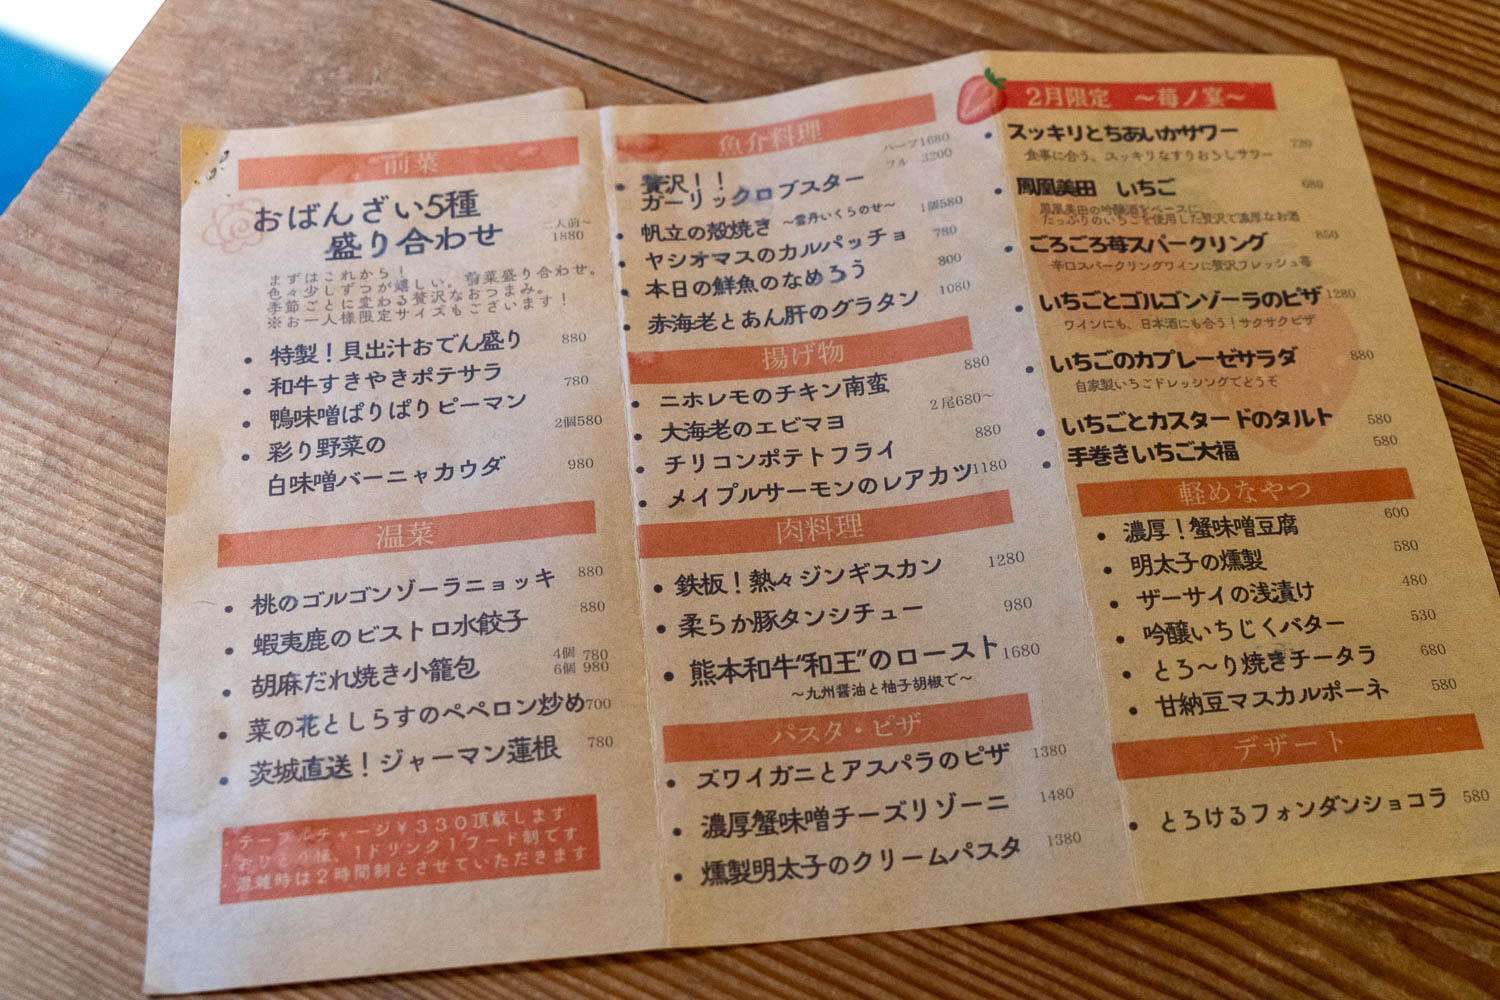 前菜
おばんざい5種
盛り合わせ
二人前～
1880
まずはこれから！ 前菜盛り合わせ。
色々少しずつが嬉しい。
季節ごとに変わる贅沢なおつまみ。
※お一人様限定サイズもございます！
• 特製！貝出汁おでん盛り 880
• 和牛すきやきポテサラ 780
• 鴨味噌ぱりぱりピーマン 2個580
• 彩り野菜の
白味噌バーニャカウダ 980
温菜
• 桃のゴルゴンゾーラニョッキ 880
• 蝦夷鹿のビストロ水餃子 880
• 胡麻だれ焼き小籠包 4個 780
6個 980
• 菜の花としらすのペペロン炒め 700
• 茨城直送！ジャーマン蓮根 780
・テーブルチャージ￥３３０頂戴します
・おひとり様、1ドリンク1フード制です
・混雑時は２時間制とさせていただきます
魚介料理
• 贅沢！！
ガーリックロブスター
ハーフ1680
フル 3200
• 帆立の殻焼き ～雲丹いくらのせ～ 1個580
• ヤシオマスのカルパッチョ 780
• 本日の鮮魚のなめろう 800
• 赤海老とあん肝のグラタン 1080
揚げ物
• ニホレモのチキン南蛮 880
• 大海老のエビマヨ 2尾680～
• チリコンポテトフライ 880
• メイプルサーモンのレアカツ 1180
肉料理
• 鉄板！熱々ジンギスカン 1280
• 柔らか豚タンシチュー 980
• 熊本和牛“和王”のロースト 1680
～九州醤油と柚子胡椒で～
パスタ・ピザ
• ズワイガニとアスパラのピザ 1380
• 濃厚蟹味噌チーズリゾーニ 1480
• 燻製明太子のクリームパスタ 1380
2月限定 ～苺ノ宴～
• スッキリとちあいかサワー 720
食事に合う、スッキリなすりおろしサワー
• 鳳凰美田 いちご 680
鳳凰美田の吟醸酒をベースに、
たっぷりのいちごを使用した贅沢で濃厚なお酒
• ごろごろ苺スパークリング 850
辛口スパークリングワインに贅沢フレッシュ苺
• いちごとゴルゴンゾーラのピザ 1280
ワインにも、日本酒にも合う！サクサクピザ
• いちごのカプレーゼサラダ 880
自家製いちごドレッシングでどうぞ
• いちごとカスタードのタルト 580
• 手巻きいちご大福 580
軽めなやつ
• 濃厚！蟹味噌豆腐 600
• 明太子の燻製 580
• ザーサイの浅漬け 480
• 吟醸いちじくバター 530
• とろ～り焼きチータラ 680
• 甘納豆マスカルポーネ 580
デザート
• とろけるフォンダンショコラ 580